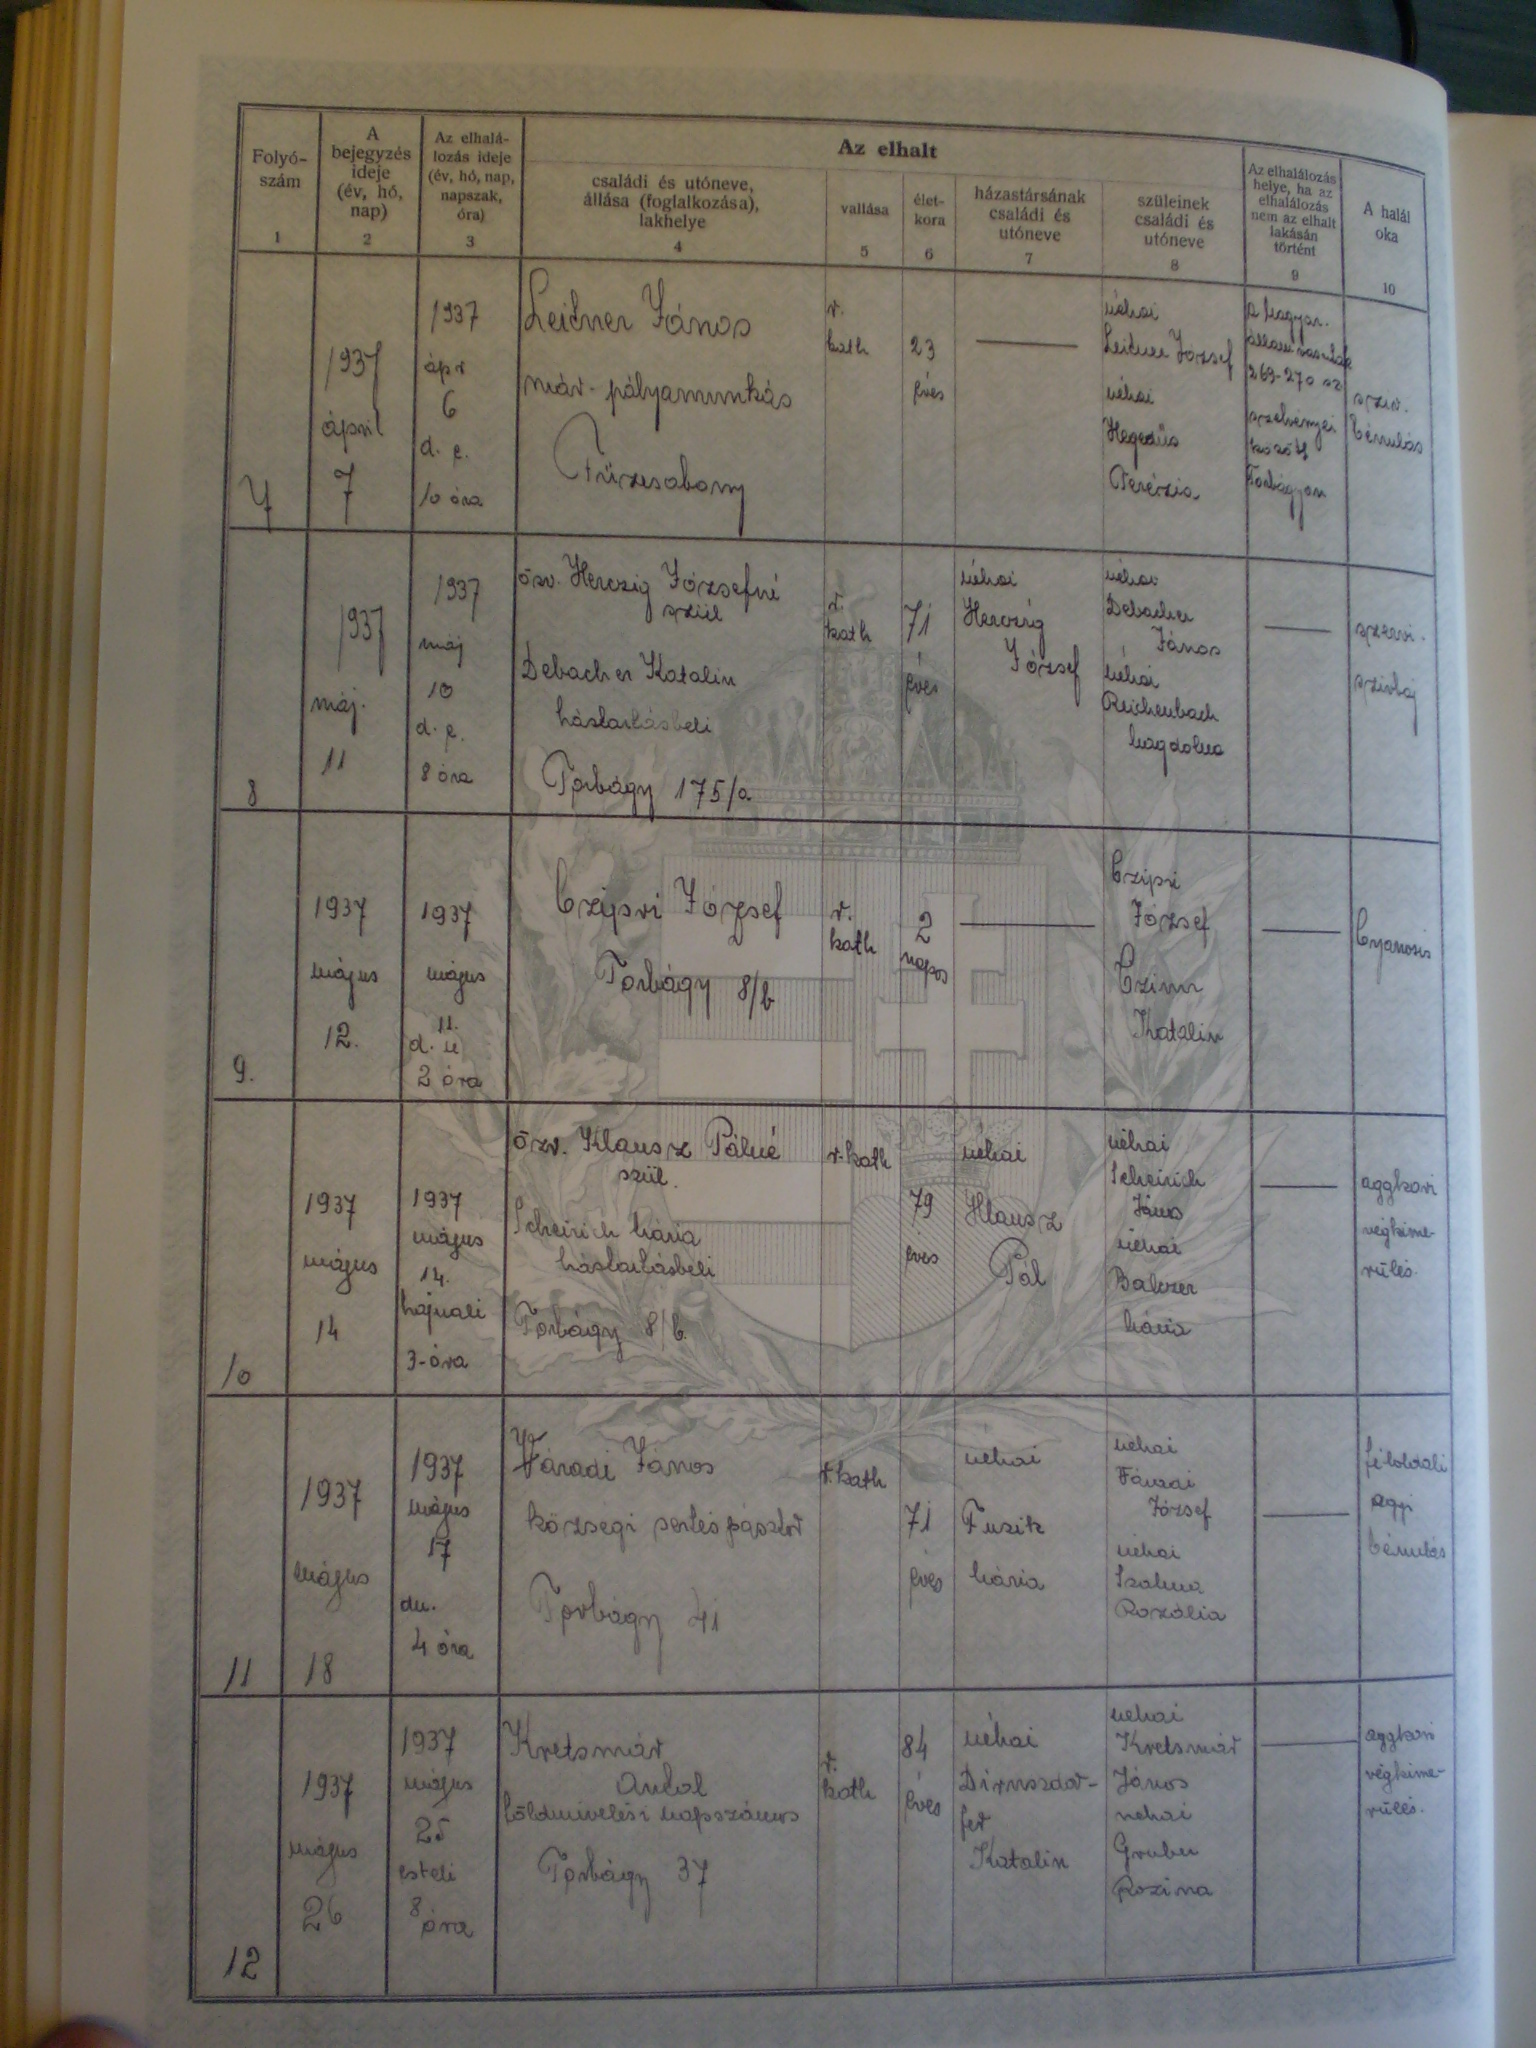 Folyó-
szám
1
A
bejegyzés
ideje
(év, hó,
nap)
2
Az elhalá-
lozás ideje
(év, hó, nap,
napszak,
óra)
3
Az elhalt
családi és utóneve,
állása (foglalkozása),
lakhelye
4
vallása
5
élet-
kora
6
házastársának
családi és
utóneve
7
szüleinek
családi és
utóneve
8
Az elhalálozás
helye, ha az
elhalálozás
nem az elhalt
lakásán
történt
9
A halál
oka
10
7
1937
április
7
1937
ápr
6
d. e.
10 óra
Leidner János
máv-pályamunkás
Füzesabony
r.
kath
23
éves
néhai
Leidner József
néhai
Hegedüs
Terézia
a magyar.
állami vasutak
269-270 sz
szelvényei
között
Torbágyon
sziv.
bénulás
8
1937
máj.
11
1937
máj
10
d. e.
8 óra
özv. Herczig Józsefné
szül
Debacher Katalin
háztartásbeli
Torbágy 175/a
r.
kath
71
éves
néhai
Herczig
József
néhai
Debacher
János
néhai
Reichenbach
Magdolna
szervi.
szivbaj
9.
1937
május
12.
1937
május
11.
d. u
2 óra
Czipri József
Torbágy 8/b
r.
kath
2
napos
Czipri
József
Czinn
Katalin
Cyanosis
10
1937
május
14
1937
május
14.
hajnali
3-óra
özv. Klausz Pálné
szül.
Scheirich Mária
háztartásbeli
Torbágy 8/b.
r. kath
79
éves
néhai
Klausz
Pál
néhai
Scheirich
János
néhai
Balczer
Mária
aggkori
végkime-
rülés.
11
1937
május
18
1937
május
17
du.
4 óra
Váradi János
községi sertéspásztor
Torbágy 41
r. kath
71
éves
néhai
Fuzik
Mária
néhai
Váradi
József
néhai
Szalma
Rozália
féloldali
agyi
bénulás
12
1937
május
26
1937
május
25
esteli
8
óra
Kretsmár
Antal
földmivelési napszámos
Torbágy 37
r.
kath
84
éves
néhai
Dirnszdor-
fer
Katalin
néhai
Kretsmár
János
néhai
Gruber
Rozina
aggkori
végkime-
rülés.